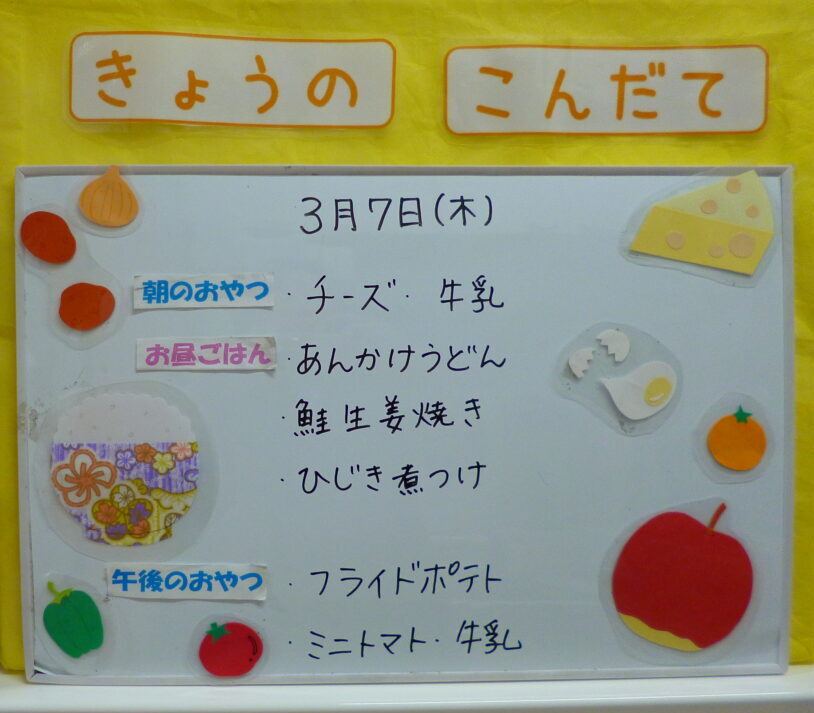 きょうの こんだて
3月7日(木)
朝のおやつ ・チーズ・ 牛乳
お昼ごはん ・あんかけうどん
・鮭生姜焼き
・ひじき煮つけ
午後のおやつ ・フライドポテト
・ミニトマト・牛乳